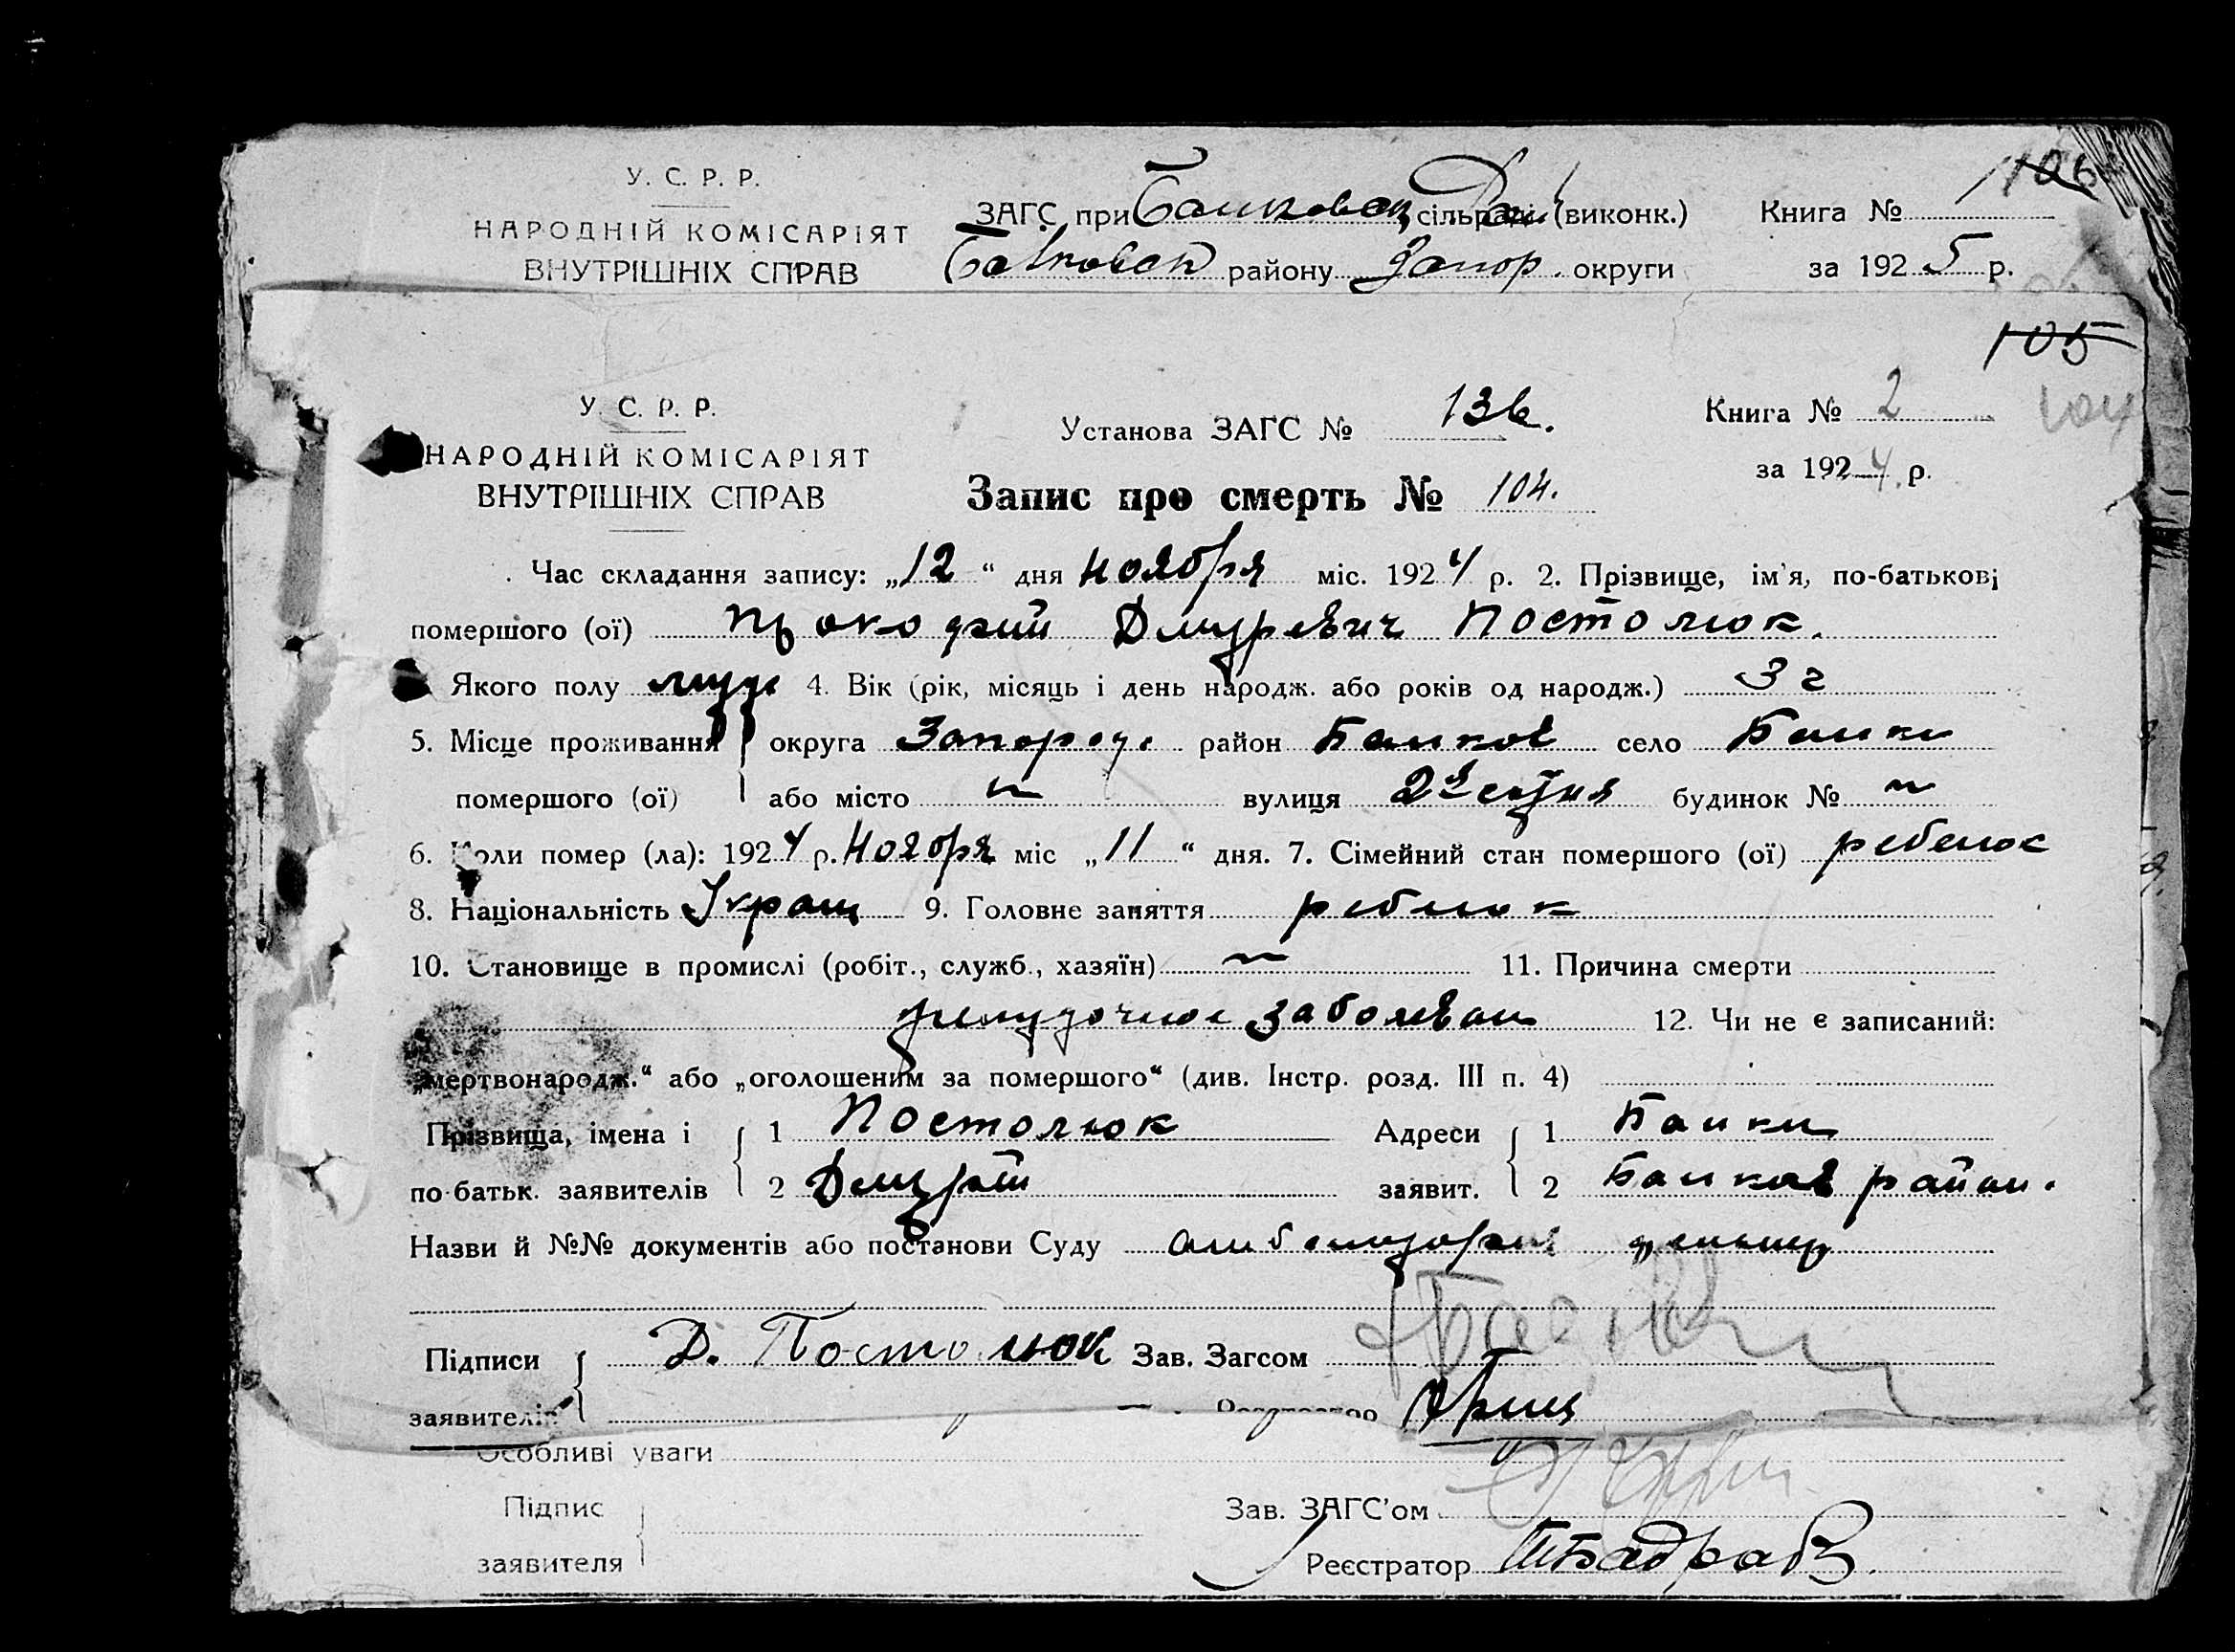 У. С. Р. Р.
НАРОДНІЙ КОМІСАРІЯТ
ВНУТРІШНІХ СПРАВ
ЗАГС при сільраді (виконк.) Книга №
району Запор. округи за 1925 р.
106
105
У. С. Р. Р.
НАРОДНІЙ КОМІСАРІЯТ
ВНУТРІШНІХ СПРАВ
Установа ЗАГС № 136.
Книга № 2 104
за 1924 р.
Запис про смерть № 104.
Час складання запису: „12“ дня ноября міс. 1924 р. 2. Прізвище, ім'я, по-батькові
помершого (ої) Постолюк.
Якого полу муж 4. Вік (рік, місяць і день народж. або років од народж.) 3 г
5. Місце проживання округа Запорож район село
помершого (ої) або місто вулиця 2я сотня будинок №
6. Коли помер (ла): 1924 р. Ноября міс „11“ дня. 7. Сімейний стан помершого (ої) ребенок
8. Національність Украин 9. Головне заняття ребенок
10. Становище в промислі (робіт., служб., хазяїн) 11. Причина смерти
желудочное заболеван 12. Чи не є записаний:
„мертвонародж.“ або „оголошеним за помершого“ (див. Інстр. розд. III п. 4)
Прізвища, імена і 1 Постолюк Адреси 1
по-батьк. заявителів 2 заявит. 2 район.
Назви й №№ документів або постанови Суду
Підписи Д. Постолюк Зав. Загсом
заявителів
Особливі уваги
Підпис Зав. ЗАГС'ом
заявителя Реєстратор